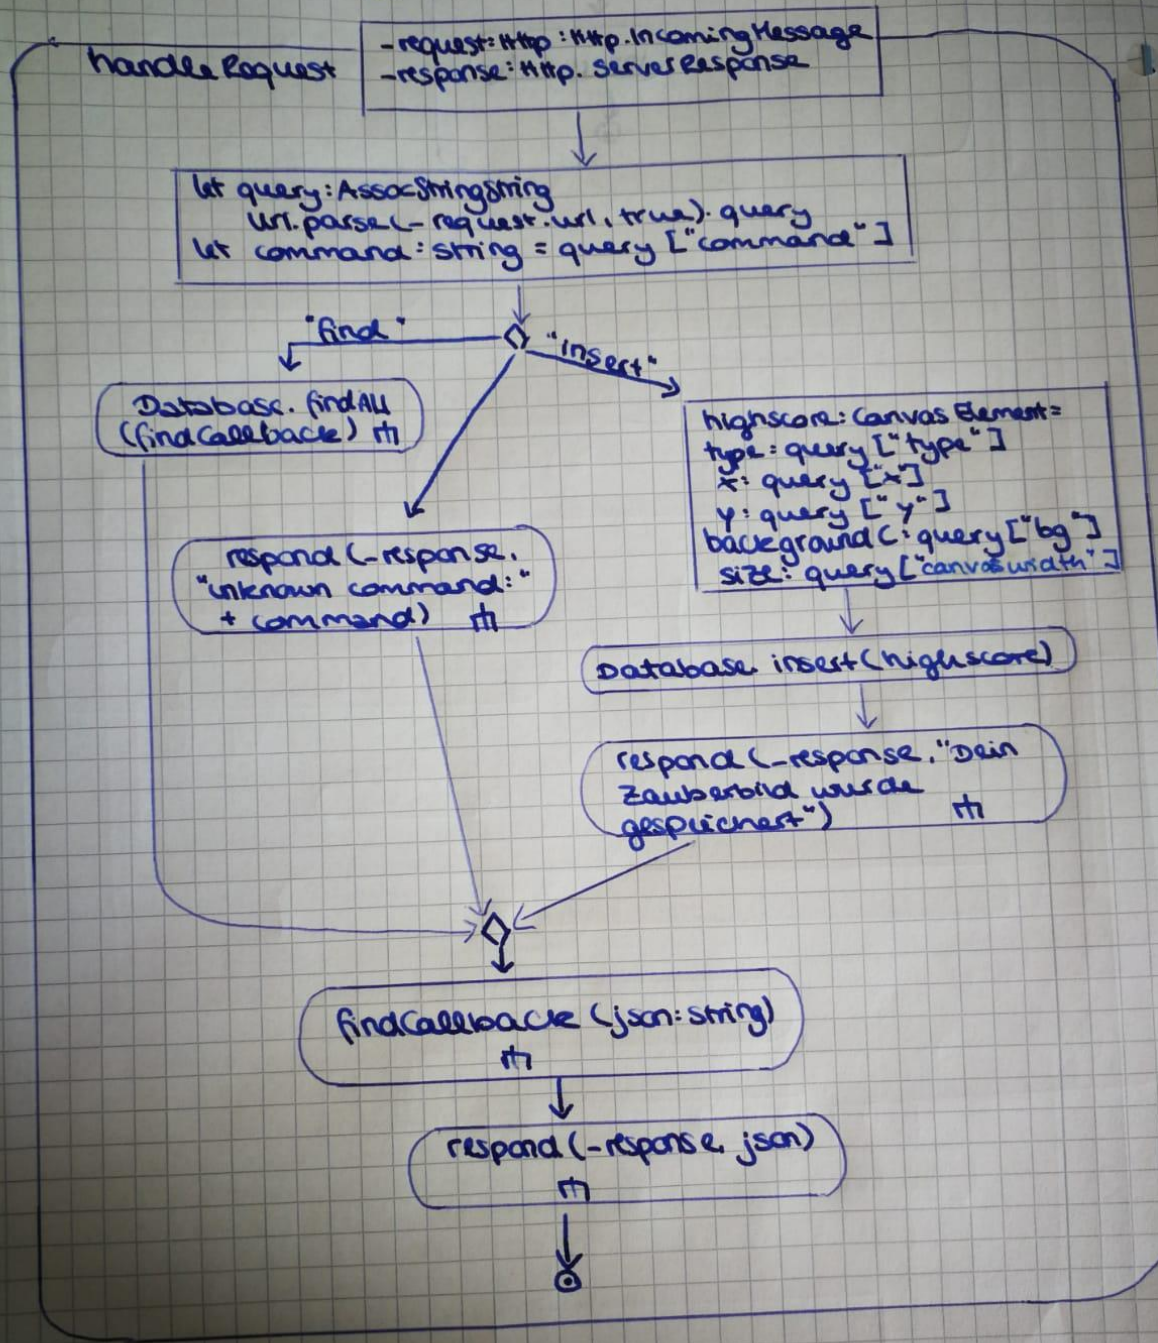 handleRequest
-request: Http : Http.IncomingMessage
-response: Http. ServerResponse
let query: AssocStringString
Url.parse(-request.url, true). query
let command: string = query ["command"]
"find"
"insert"
Database. findAll
(findCallback)
highscore: Canvas Element=
type: query ["type"]
x: query ["x"]
y: query ["y"]
backgroundC: query ["bg"]
size: query ["canvaswidth"]
respond (-response,
"unknown command:"
+ command)
Database insert(highscore)
respond (-response, "Dein
Zauberbild wurde
gespeichert")
findCallback (json: string)
respond (-response, json)